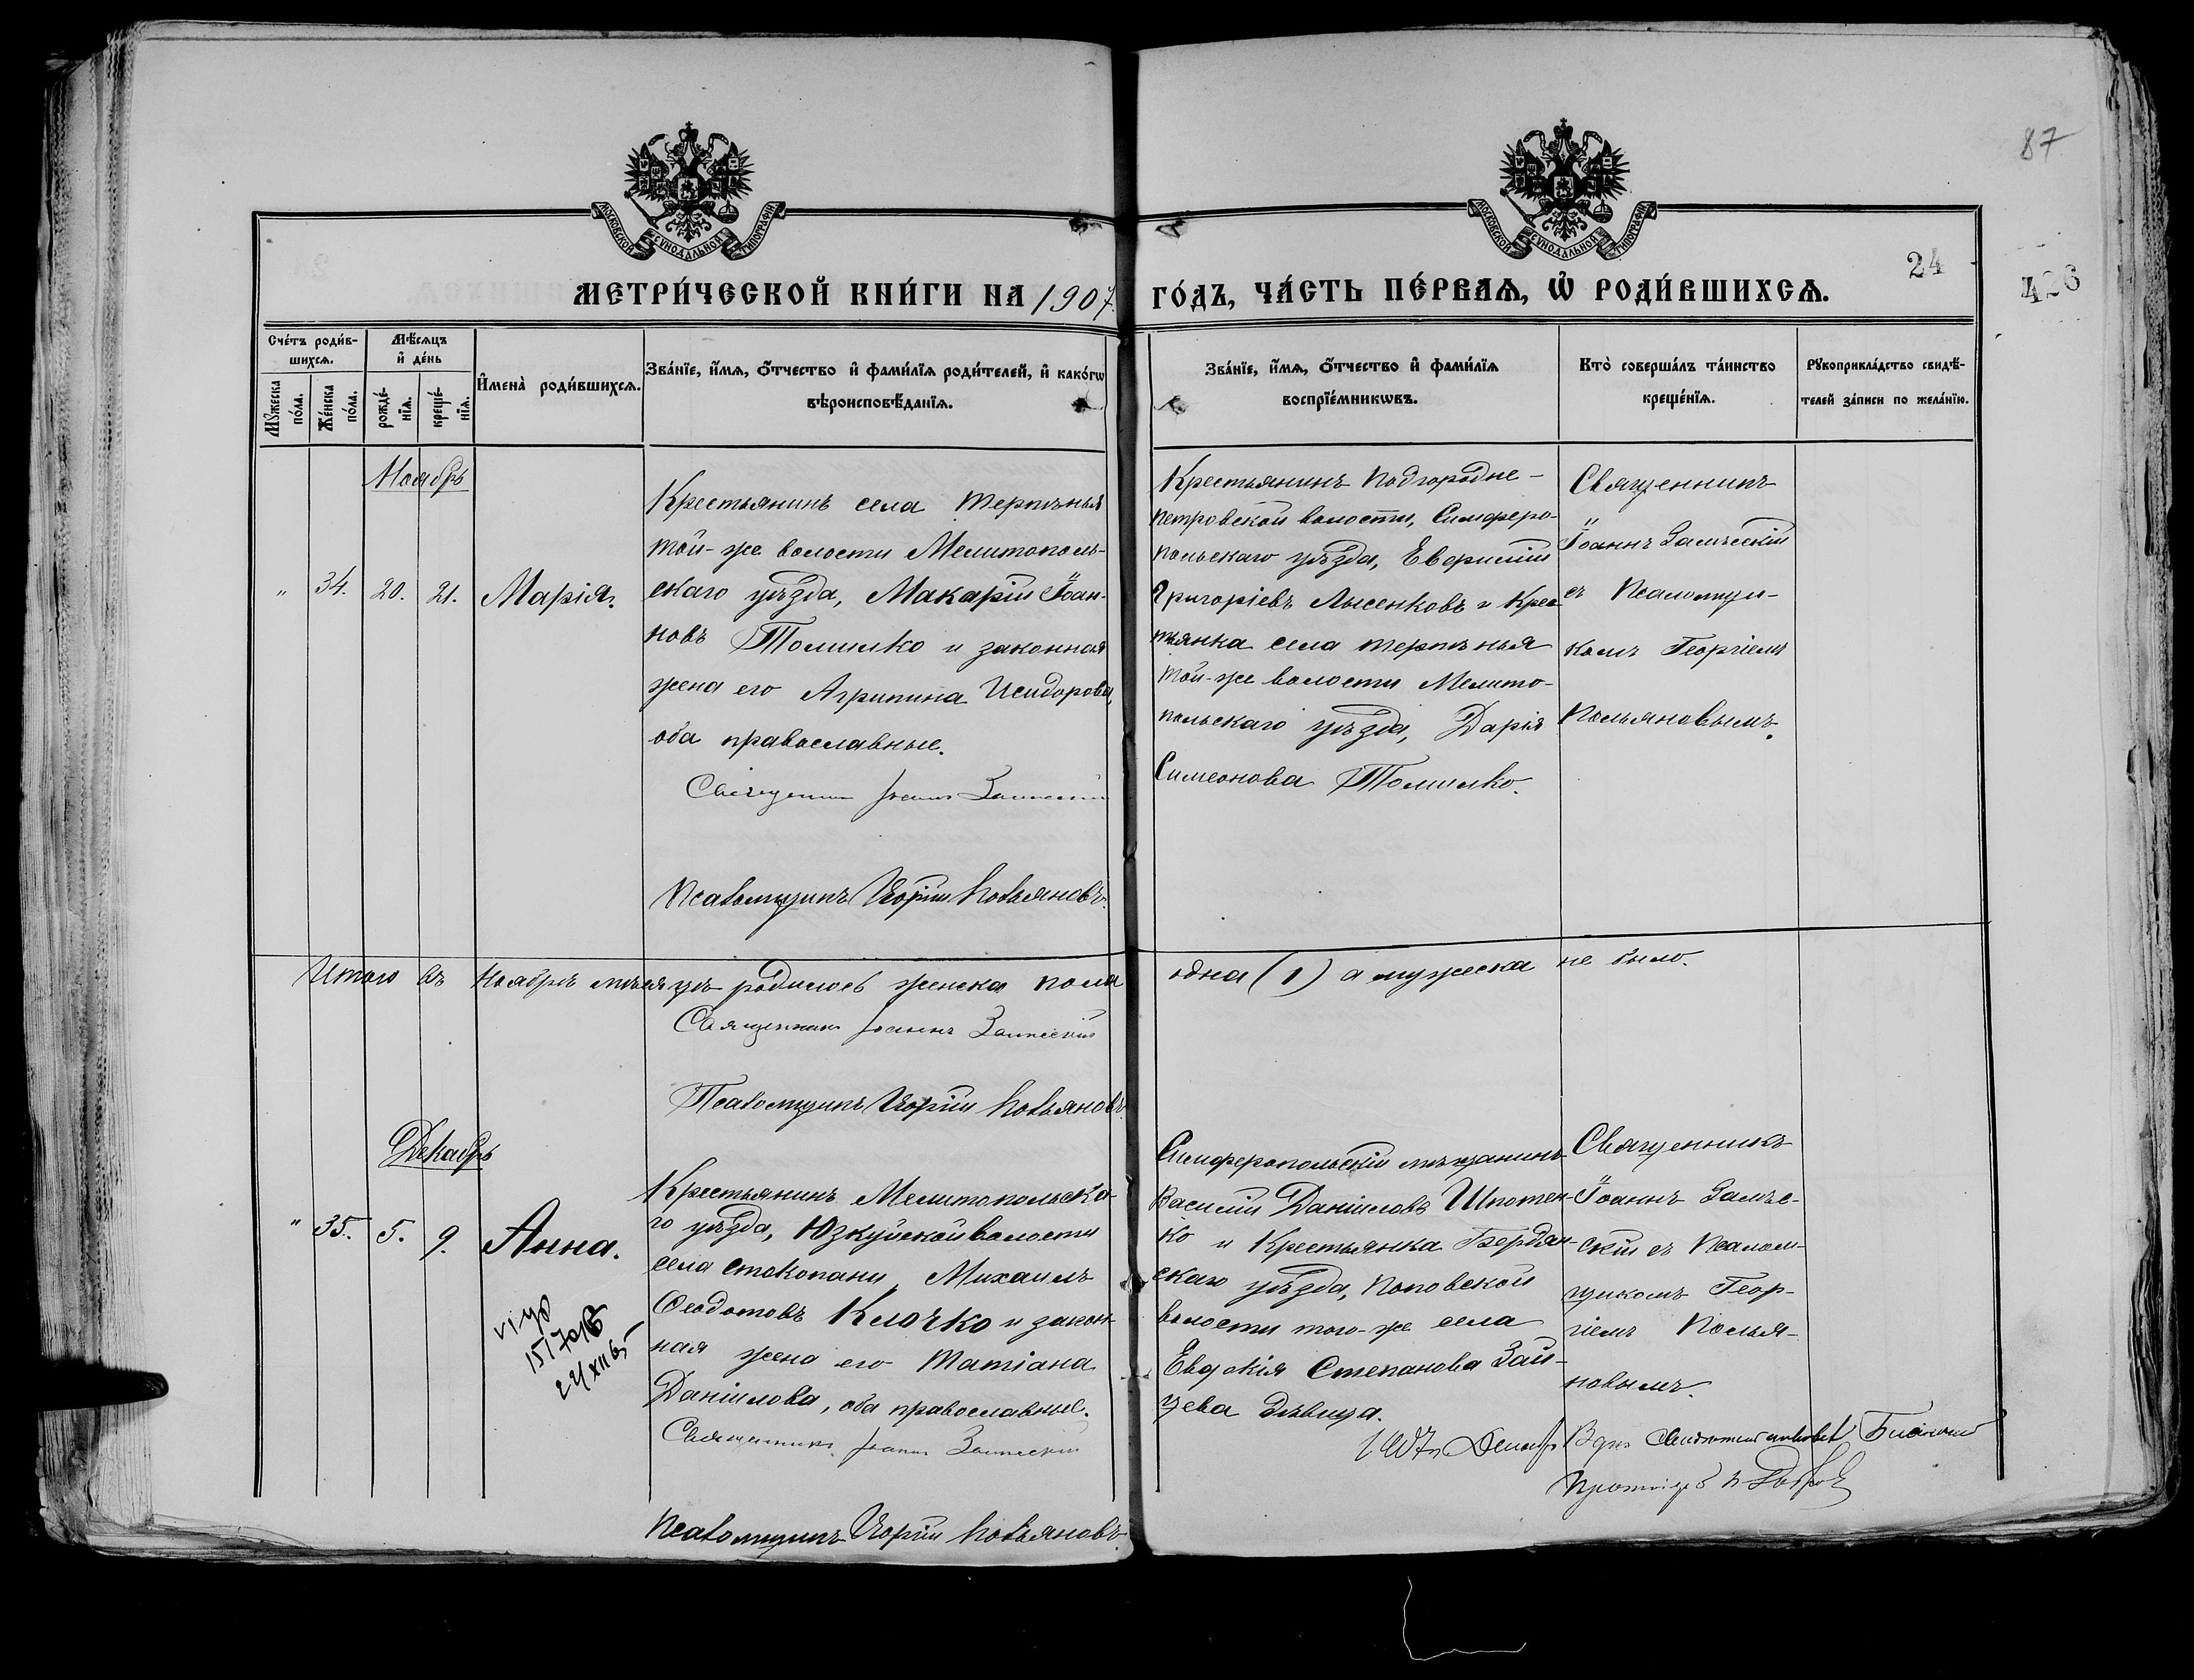 87
МОСКОВСКОЙ СѴНОДАЛЬНОЙ ТИПОГРАФІИ
МОСКОВСКОЙ СѴНОДАЛЬНОЙ ТИПОГРАФІИ
24
426
МЕТРИ́ЧЕСКОЙ КНИ́ГИ НА 1907 ГО́ДЪ, ЧА́СТЬ ПЕ́РВАѦ, Ѡ҆ РОДИ́ВШИХСѦ.
Сче́тъ роди́в-
шихсѧ.
Мꙋ́жеска по́ла.
Же́нска по́ла.
Мѣ́сѧцъ
и҆ де́нь
рожде́-
нїѧ.
креще́-
нїѧ.
И҆мена̀ роди́вшихсѧ.
Зва́нїе, и҆́мѧ, ѻ҆́тчество и҆ фами́лїѧ роди́телей, и҆ како́гѡ
вѣроисповѣ́данїѧ.
Зва́нїе, и҆́мѧ, ѻ҆́тчество и҆ фами́лїѧ
воспрїе́мникѡвъ.
Кто̀ соверша́лъ та́инство
креще́нїѧ.
Рꙋкоприкла́дство свидѣ́-
телей за́писи по жела́нїю.
Ноябрь
" 34. 20. 21. Марія.
Крестьянинъ села Терпѣнья
той-же волости Мелитополь-
скаго уѣзда, Макарій Іоан-
новъ Томилко и законная
жена его Агрипина Исидорова,
оба православные.
Священникъ Іоаннъ Замѣсскій
Псаломщикъ Георгій Польяновъ.
Крестьянинъ Подгородне-
Петровской волости, Симферо-
польскаго уѣзда, Евфимій
Григоріевъ Лысенковъ и Крес-
тьянка села Терпѣнья
той-же волости Мелито-
польскаго уѣзда, Дарія
Симеонова Томилко.
Священникъ
Іоаннъ Замѣсскій
съ Псаломщи-
комъ Георгіемъ
Польяновымъ.
Итого въ Ноябрѣ мѣсяцѣ родилось женска пола одна (1) а мужеска не было.
Священникъ Іоаннъ Замѣсскій
Псаломщикъ Георгій Польяновъ.
Декабрь
" 35. 5. 9. Анна.
Крестьянинъ Мелитопольска-
го уѣзда, Юзкуйской волости
села Стокопани, Михаилъ
Ѳеодотовъ Клочко и закон-
ная жена его Татіана
Даніилова, оба православные.
Священникъ Іоаннъ Замѣсскій
Псаломщикъ Георгій Польяновъ.
Симферопольскій мѣщанинъ
Василій Даніиловъ Шпотен-
ко и Крестьянка Бердян-
скаго уѣзда, Поповской
волости того-же села
Евдокія Степанова Зай-
цева дѣвица.
Священникъ
Іоаннъ Замѣс-
скій съ Псалом-
щикомъ Геор-
гіемъ Полья-
новымъ.
1907 г. Декабр